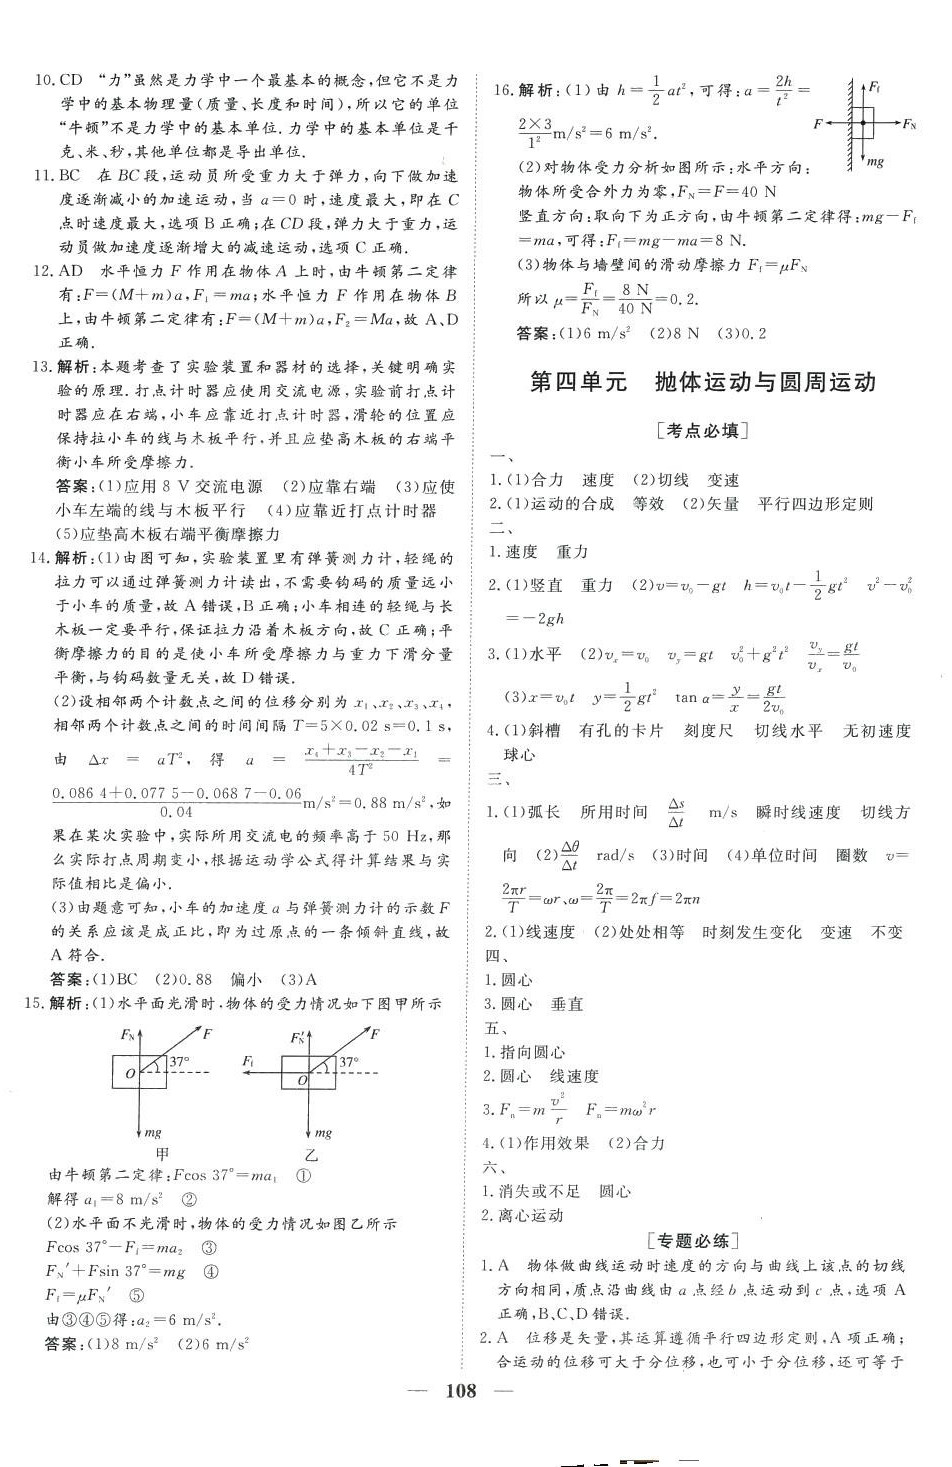 10.CD　“力”虽然是力学中一个最基本的概念,但它不是力
学中的基本物理量(质量、长度和时间),所以它的单位
“牛顿”不是力学中的基本单位.力学中的基本单位是千
克、米、秒,其他单位都是导出单位.
11.BC　在BC段,运动员所受重力大于弹力,向下做加速
度逐渐减小的加速运动,当a=0时,速度最大,即在C
点时速度最大,选项B正确;在CD段,弹力大于重力,运
动员做加速度逐渐增大的减速运动,选项C正确.
12.AD　水平恒力F作用在物体A上时,由牛顿第二定律
有:F=(M+m)a,F₁=ma;水平恒力F作用在物体B
上,由牛顿第二定律有:F=(M+m)a,F₂=Ma,故A、D
正确.
13.解析:本题考查了实验装置和器材的选择,关键明确实
验的原理.打点计时器应使用交流电源,实验前打点计
时器应在右端,小车应靠近打点计时器,滑轮的位置应
保持拉小车的线与木板平行,并且应垫高木板的右端平
衡小车所受摩擦力.
答案:(1)应用8 V交流电源　(2)应靠右端　(3)应使
小车左端的线与木板平行　(4)应靠近打点计时器
(5)应垫高木板右端平衡摩擦力
14.解析:(1)由图可知,实验装置里有弹簧测力计,轻绳的
拉力可以通过弹簧测力计读出,不需要钩码的质量远小
于小车的质量,故A错误,B正确;小车相连的轻绳与长
木板一定要平行,保证拉力沿着木板方向,故C正确;平
衡摩擦力的目的是使小车所受摩擦力与重力下滑分量
平衡,与钩码数量无关,故D错误.
(2)设相邻两个计数点之间的位移分别为x₁、x₂、x₃、x₄,
相邻两个计数点之间的时间间隔T=5×0.02 s=0.1 s,
由　Δx = aT²,　得　a = (x₄+x₃−x₂−x₁)/4T² =
(0.086 4+0.077 5−0.068 7−0.06)/0.04 m/s²=0.88 m/s²,如
果在某次实验中,实际所用交流电的频率高于50 Hz,那
么实际打点周期变小,根据运动学公式得计算结果与实
际值相比是偏小.
(3)由题意可知,小车的加速度a与弹簧测力计的示数F
的关系应该是成正比,即为过原点的一条倾斜直线,故
A符合.
答案:(1)BC　(2)0.88　偏小　(3)A
15.解析:(1)水平面光滑时,物体的受力情况如下图甲所示
F_N　F　37°　O　mg　甲
F_N′　F　F_f　37°　O　mg　乙
由牛顿第二定律:Fcos 37°=ma₁　①
解得a₁=8 m/s²　②
(2)水平面不光滑时,物体的受力情况如图乙所示
Fcos 37°−F_f=ma₂　③
F_N′+Fsin 37°=mg　④
F_f=μF_N′　⑤
由③④⑤得:a₂=6 m/s².
答案:(1)8 m/s²　(2)6 m/s²
16.解析:(1)由h=½at²,可得:a=2h/t²=
2×3/1² m/s²=6 m/s².
F_f　F　F_N　mg
(2)对物体受力分析如图所示:水平方向:
物体所受合外力为零,F_N=F=40 N
竖直方向:取向下为正方向,由牛顿第二定律得:mg−F_f
=ma,可得:F_f=mg−ma=8 N.
(3)物体与墙壁间的滑动摩擦力F_f=μF_N
所以μ=F_f/F_N=8 N/40 N=0.2.
答案:(1)6 m/s²　(2)8 N　(3)0.2
第四单元　抛体运动与圆周运动
[考点必填]
一、
1.(1)合力　速度　(2)切线　变速
2.(1)运动的合成　等效　(2)矢量　平行四边形定则
二、
1.速度　重力
2.(1)竖直　重力　(2)v=v₀−gt　h=v₀t−½gt²　v²−v₀²
=−2gh
3.(1)水平　(2)vₓ=v₀　v_y=gt　v₀²+g²t²　v_y/vₓ=gt/v₀
(3)x=v₀t　y=½gt²　tan α=y/x=gt/2v₀
4.(1)斜槽　有孔的卡片　刻度尺　切线水平　无初速度
球心
三、
1.(1)弧长　所用时间　Δs/Δt　m/s　瞬时线速度　切线方
向　(2)Δθ/Δt　rad/s　(3)时间　(4)单位时间　圈数　v=
2πr/T=ωr、ω=2π/T=2πf=2πn
2.(1)线速度　(2)处处相等　时刻发生变化　变速　不变
四、
1.圆心
3.圆心　垂直
五、
1.指向圆心
2.圆心　线速度
3.F_n=m v²/r　F_n=mω²r
4.(1)作用效果　(2)合力
六、
1.消失或不足　圆心
2.离心运动
[专题必练]
1.A　物体做曲线运动时速度的方向与曲线上该点的切线
方向相同,质点沿曲线由a点经b点运动到c点,选项A
正确,B、C、D错误.
2.A　位移是矢量,其运算遵循平行四边形定则,A项正确;
合运动的位移可大于分位移,也可小于分位移,还可等于
— 108 —